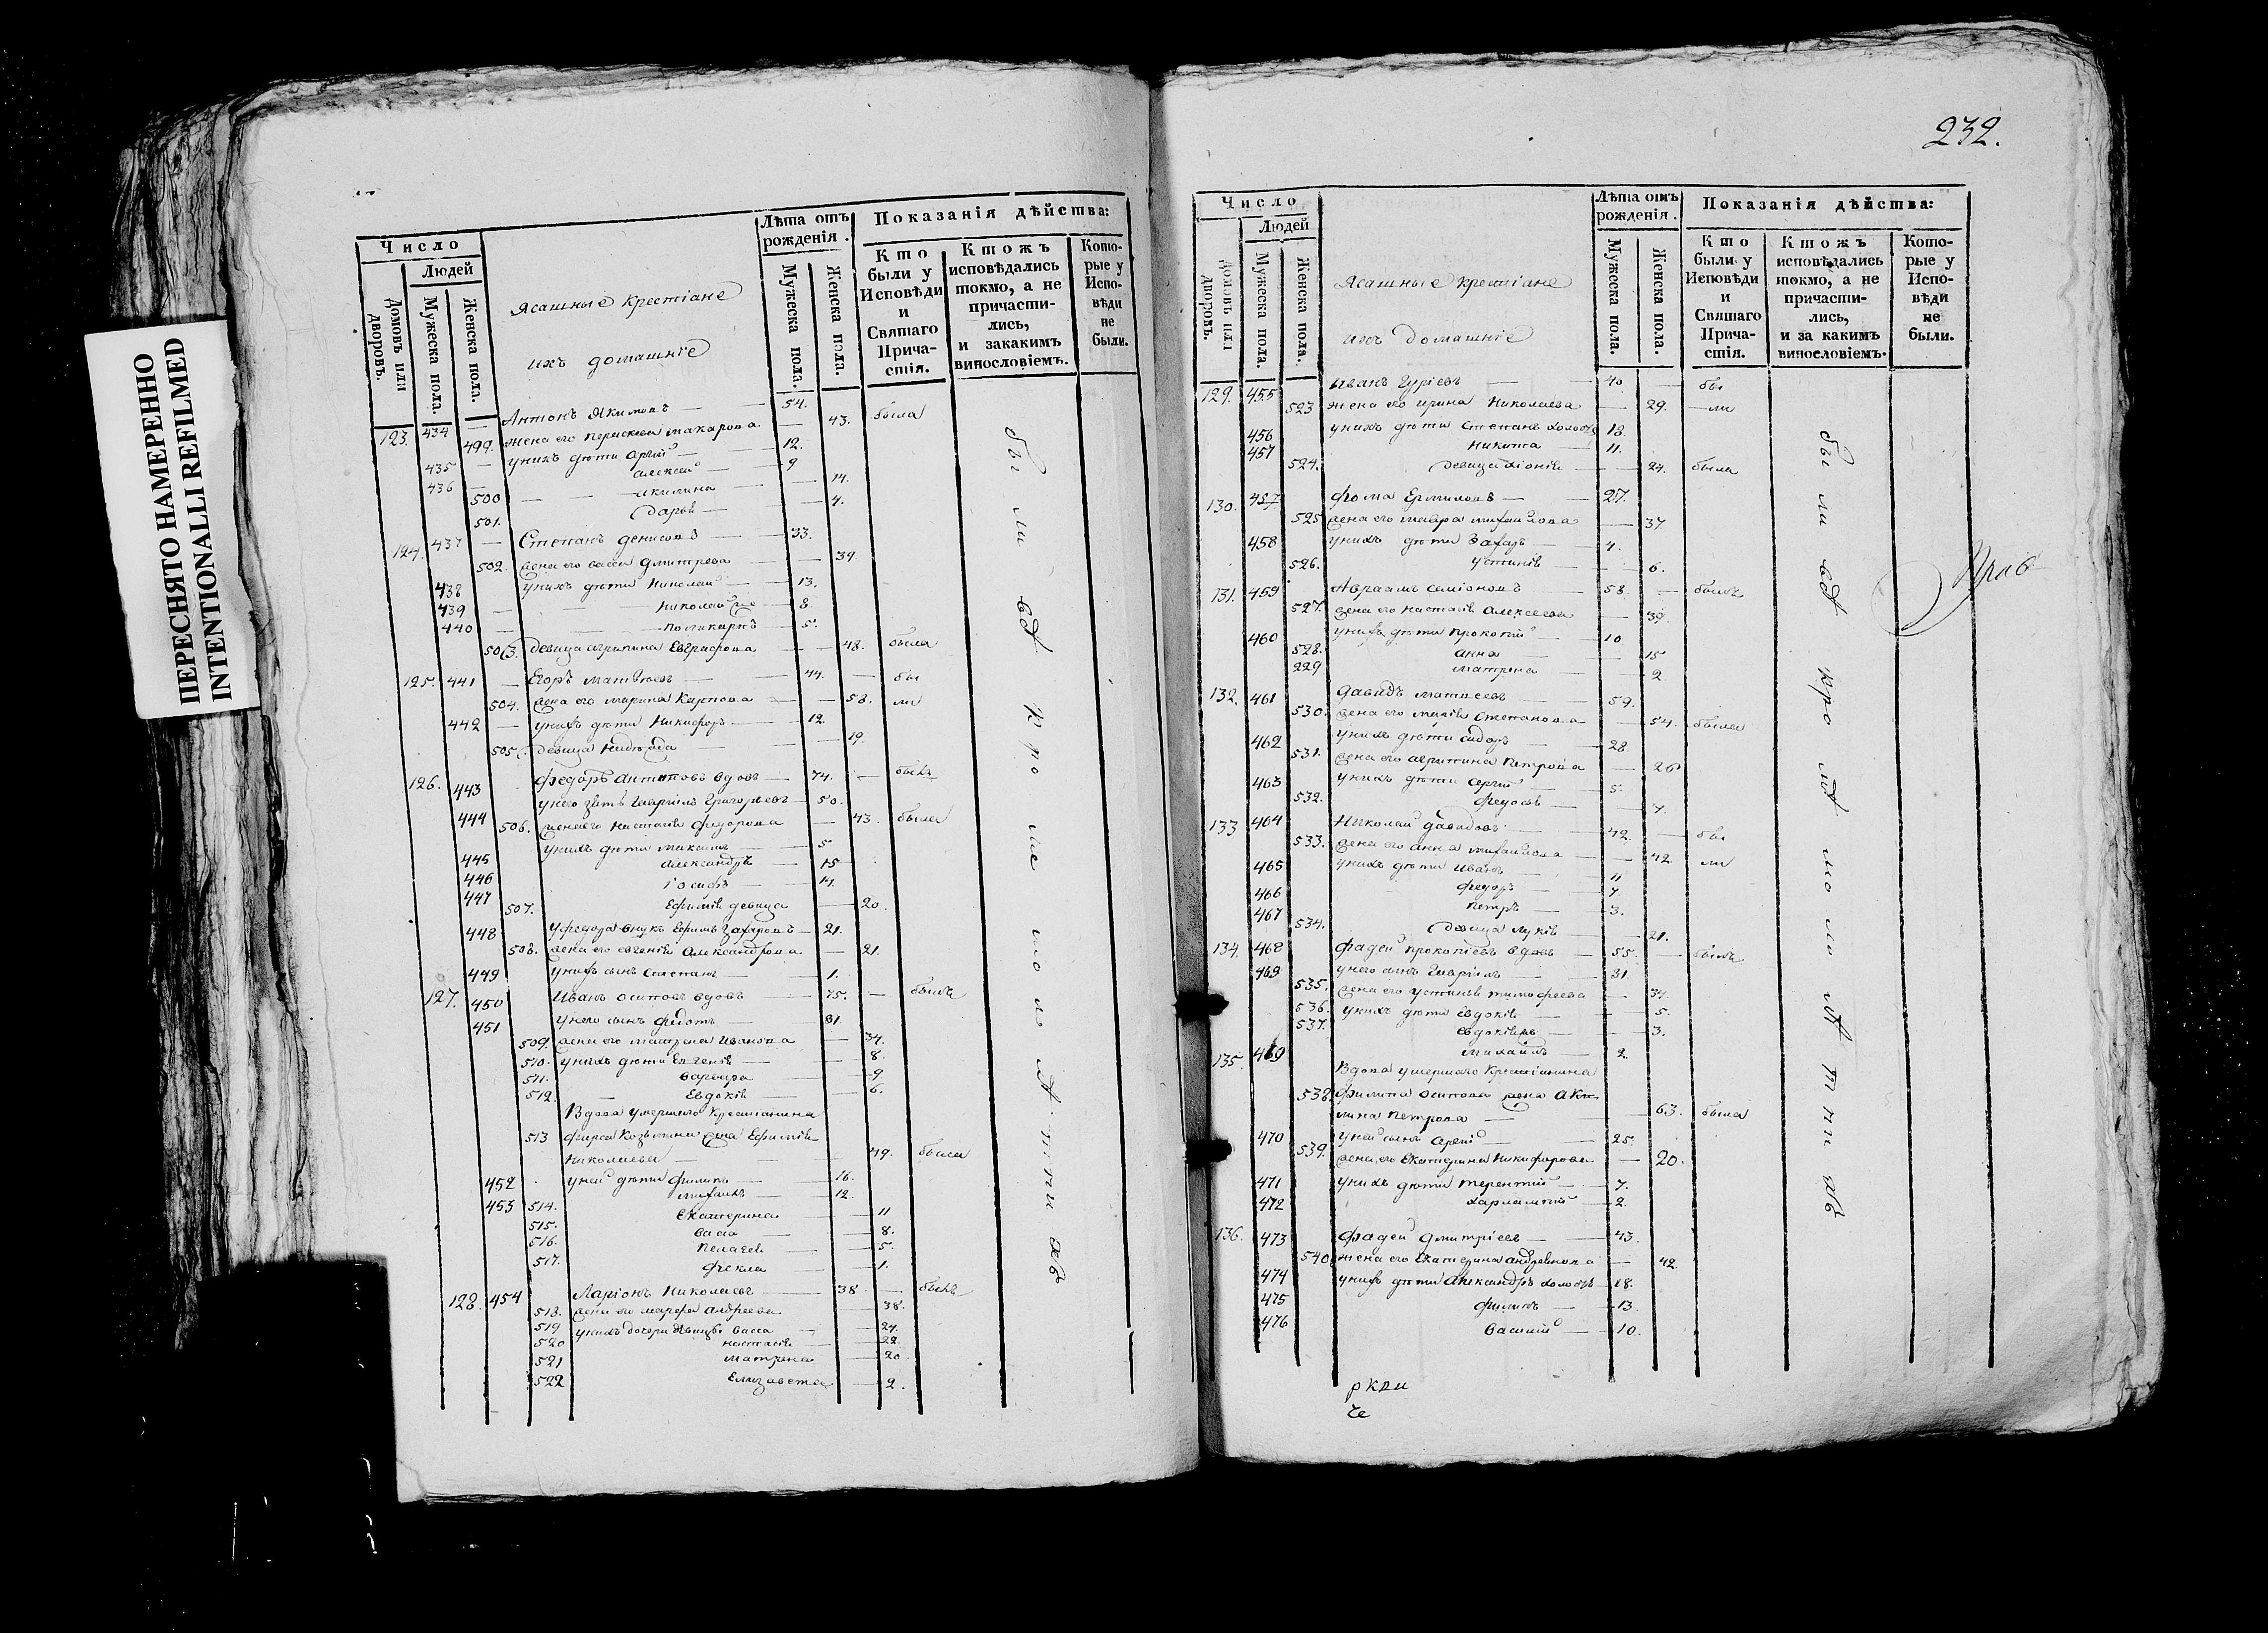 ПЕРЕСНЯТО НАМЕРЕННО
INTENTIONALLI REFILMED
Число
Людей
Домовъ или дворовъ.
Мужеска пола.
Женска пола.
Ясашные крестіане
ихъ домашніе
Лѣта отъ рожденія.
Мужеска пола.
Женска пола.
Показанія дѣйства:
Кто были у Исповѣди и Святаго Причастія.
Ктожъ исповѣдались токмо, а не причастились, и закакимъ винословіемъ.
Которые у Исповѣди не были.
123. 434 — Антонъ Якимовъ — 54.
499. жена его Параскева Макарова — 43. была
435 — у нихъ дѣти Сергій — 12.
436 — Алексей — 9
500 — Акилина — 14.
501. Дарья — 4.
124. 437 — Степанъ Денисовъ — 33.
502. жена его Васса Дмитрева — 34.
438 у нихъ дѣти Николай — 13.
439 — Николай — 8
440 — Поликарпъ — 5.
503. девица Агрипина Евграфова — 48. была
125. 441 — Егоръ Матвѣевъ — 44. — бы
504. жена его Марина Карпова — 58. ли
442 — у нихъ дѣти Никифоръ — 12.
505. девица Надежда — 19.
126. 443 Федоръ Антиповъ вдовъ — 74. — былъ
444 у него зять Гаврiилъ Григорьевъ — 50.
506. жена его Настасія Федорова — 43. была
445 у нихъ дѣти Максимъ — 5
446 Александръ — 15
447 Іосифъ — 14.
507. Ефимія девица — 20.
448 у Федора внукъ Ефимъ Захаровъ — 21.
508. жена его Евгенія Александрова — 21.
449 у нихъ сынъ Степанъ — 1.
127. 450 Иванъ Осиповъ вдовъ — 75. — былъ
451 у него сынъ Федотъ — 31
509. жена его Матрена Иванова — 34.
510. у нихъ дѣти Евгенія — 8.
511. Варвара — 9
512. — Евдокія — 6.
Вдова умершаго крестіанина
513 Фирса Козьмина жена Ефимія
Николаева — 49. была
452 у ней дѣти Филипъ — 16.
453 Михаилъ — 12.
514. Екатерина — 11
515. Васса — 8.
516. Пелагея — 5.
517. Фекла — 1.
128. 454 Ларіонъ Николаевъ — 38 — былъ
518. жена его Марфа Андреева — 38.
519 у нихъ дочери девицы Васса — 24.
520 Настасія — 22.
521 Матрена — 20
522 Елизавета — 2.
бы ли всѣ кромѣ малолѣтнихъ
232.
Число
Людей
Домовъ или дворовъ.
Мужеска пола
Женска пола.
Ясашные крестіане
ихъ домашніе
Лѣта отъ рожденія.
Мужеска пола.
Женска пола.
Показанія дѣйства:
Кто были у Исповѣди и Святаго Причастія.
Ктожъ исповѣдались токмо, а не причастились, и за какимъ винословіемъ.
Которые у Исповѣди не были.
129. 455 Иванъ Гуріевъ — 40 — бы
523 жена его Ирина Николаева — 29. — ли
456 у нихъ дѣти Степанъ холостъ 18.
457 Никита — 11.
524. девица Хіонія — 24. была
130. 457 Фома Ермиловъ — 27.
525 жена его Мавра Михайлова — 37
458 у нихъ дѣти Захаръ — 4.
526. Устинія — 6.
131. 459 Авраамъ Симіоновъ — 58. — былъ
527. жена его Настасія Алексеева — 39.
460 у нихъ дѣти Прокопій — 10
528. Анна — 15
229 Матрена — 2
132. 461 Давидъ Матвеевъ — 59.
530. жена его Марія Степанова — 54. была
462 у нихъ дѣти Сидоръ — 28.
531. жена его Агрипина Петрова — 26
463 у нихъ дѣти Сергій — 5.
532. Федосья — 7.
133 464 Николай Давидовъ — 42. — бы
533. жена его Анна Михайлова — 42. ли
465 у нихъ дѣти Иванъ — 11
466 Федоръ — 7.
467 Петръ — 3.
534. девица Лукія — 21.
134. 468 Фадей Прокопіевъ вдовъ — 55. — былъ
469 у него сынъ Гавріилъ — 31.
535. жена его Устинья Тимофеева — 34.
536. у нихъ дѣти Евдокія — 5.
537. Евдокія — 3.
135. 469 Михаилъ — 2.
Вдова умершаго крестіанина
538. Филипа Осипова жена Аки-
лина Петрова — 63. была
470 у ней сынъ Сергій — 25.
539. жена его Екатерина Никифорова — 20.
471 у нихъ дѣти Терентій — 7.
472 Харлампій — 2.
136. 473 Фадей Дмитріевъ — 43.
540 жена его Екатерина Андреянова — 42.
474 у нихъ дѣти Александръ холостъ — 18.
475 Филипъ — 13.
476 Василій — 10.
бы ли всѣ кромѣ малолѣтнихъ